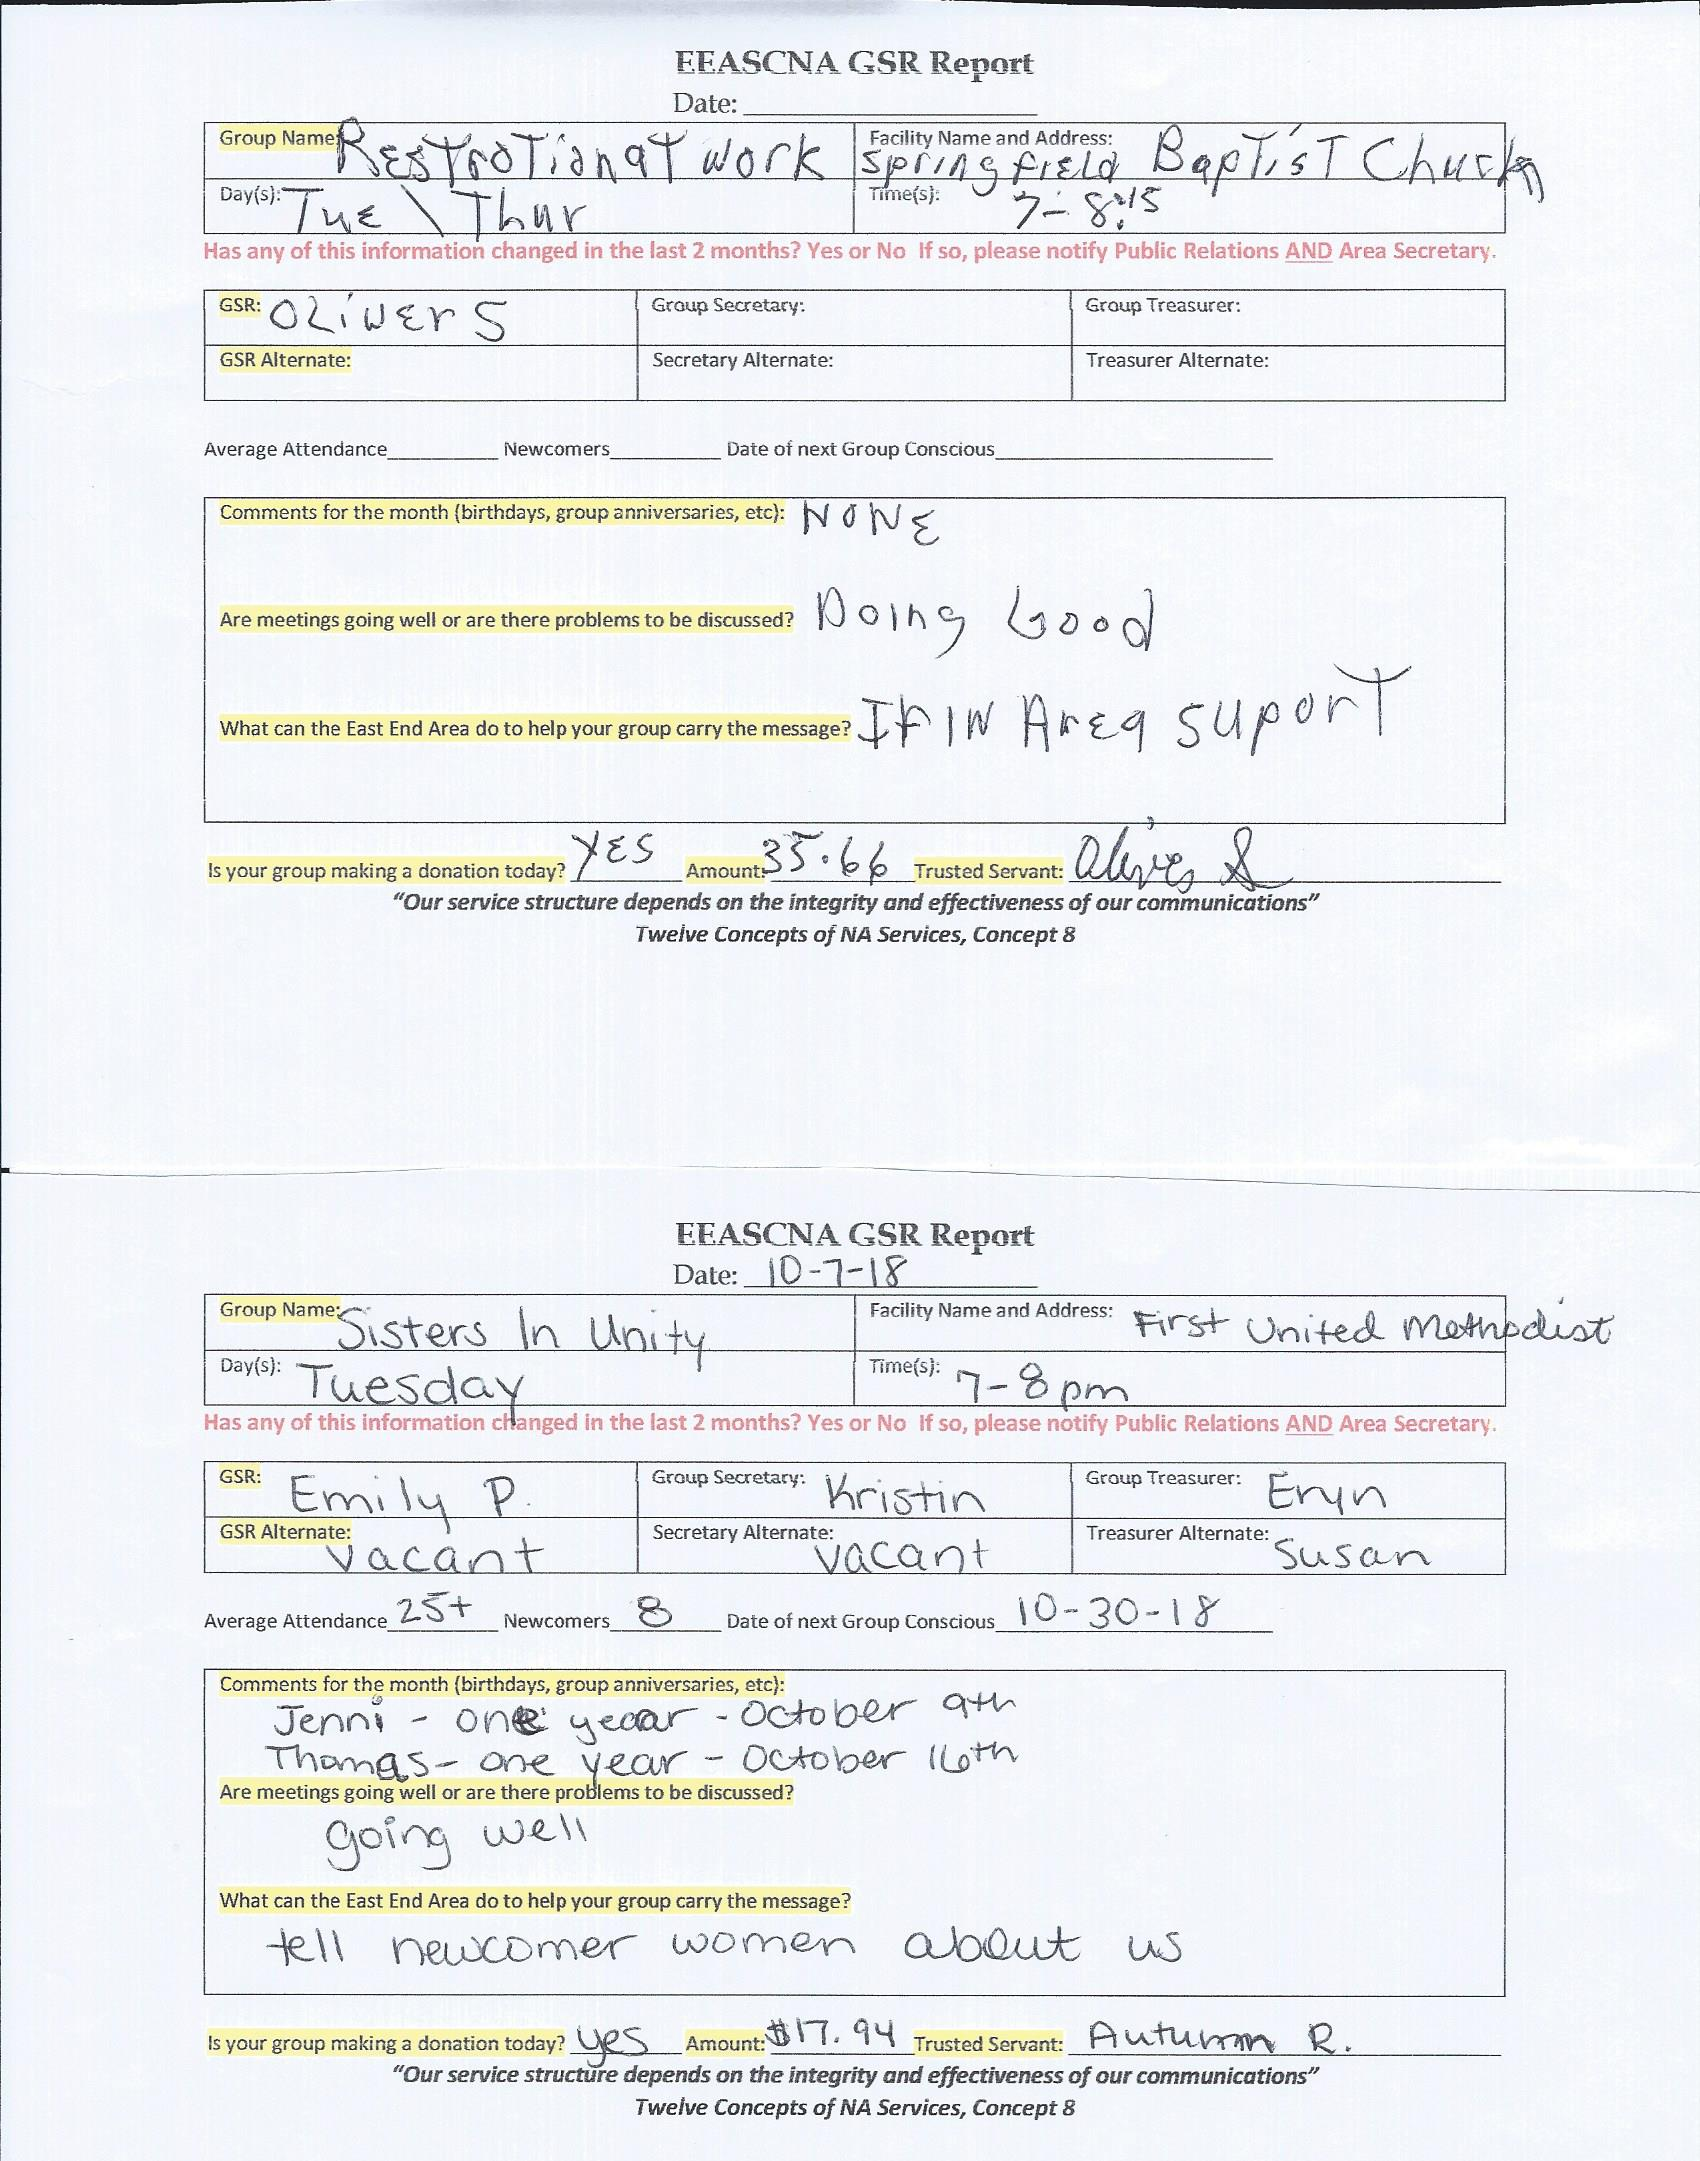 EEASCNA GSR Report
Date:
Group Name: RESTROTION AT WORK Facility Name and Address: Springfield Baptist Church
Day(s): Tue \ Thur Time(s): 7-8:15
Has any of this information changed in the last 2 months? Yes or No If so, please notify Public Relations AND Area Secretary.
GSR: OLIVER S Group Secretary: Group Treasurer:
GSR Alternate: Secretary Alternate: Treasurer Alternate:
Average Attendance Newcomers Date of next Group Conscious
Comments for the month (birthdays, group anniversaries, etc): NONE
Are meetings going well or are there problems to be discussed? Doing Good
What can the East End Area do to help your group carry the message? IN Area suport
Is your group making a donation today? YES Amount: 35.66 Trusted Servant: Oliver S
“Our service structure depends on the integrity and effectiveness of our communications”
Twelve Concepts of NA Services, Concept 8
EEASCNA GSR Report
Date: 10-7-18
Group Name: Sisters In Unity Facility Name and Address: First United Methodist
Day(s): Tuesday Time(s): 7-8pm
Has any of this information changed in the last 2 months? Yes or No If so, please notify Public Relations AND Area Secretary.
GSR: Emily P. Group Secretary: Kristin Group Treasurer: Eryn
GSR Alternate: Vacant Secretary Alternate: vacant Treasurer Alternate: Susan
Average Attendance 25+ Newcomers 8 Date of next Group Conscious 10-30-18
Comments for the month (birthdays, group anniversaries, etc):
Jenni - one year - October 9th
Thomas - one year - October 16th
Are meetings going well or are there problems to be discussed?
going well
What can the East End Area do to help your group carry the message?
tell newcomer women about us
Is your group making a donation today? yes Amount: $17.94 Trusted Servant: Autumn R.
“Our service structure depends on the integrity and effectiveness of our communications”
Twelve Concepts of NA Services, Concept 8